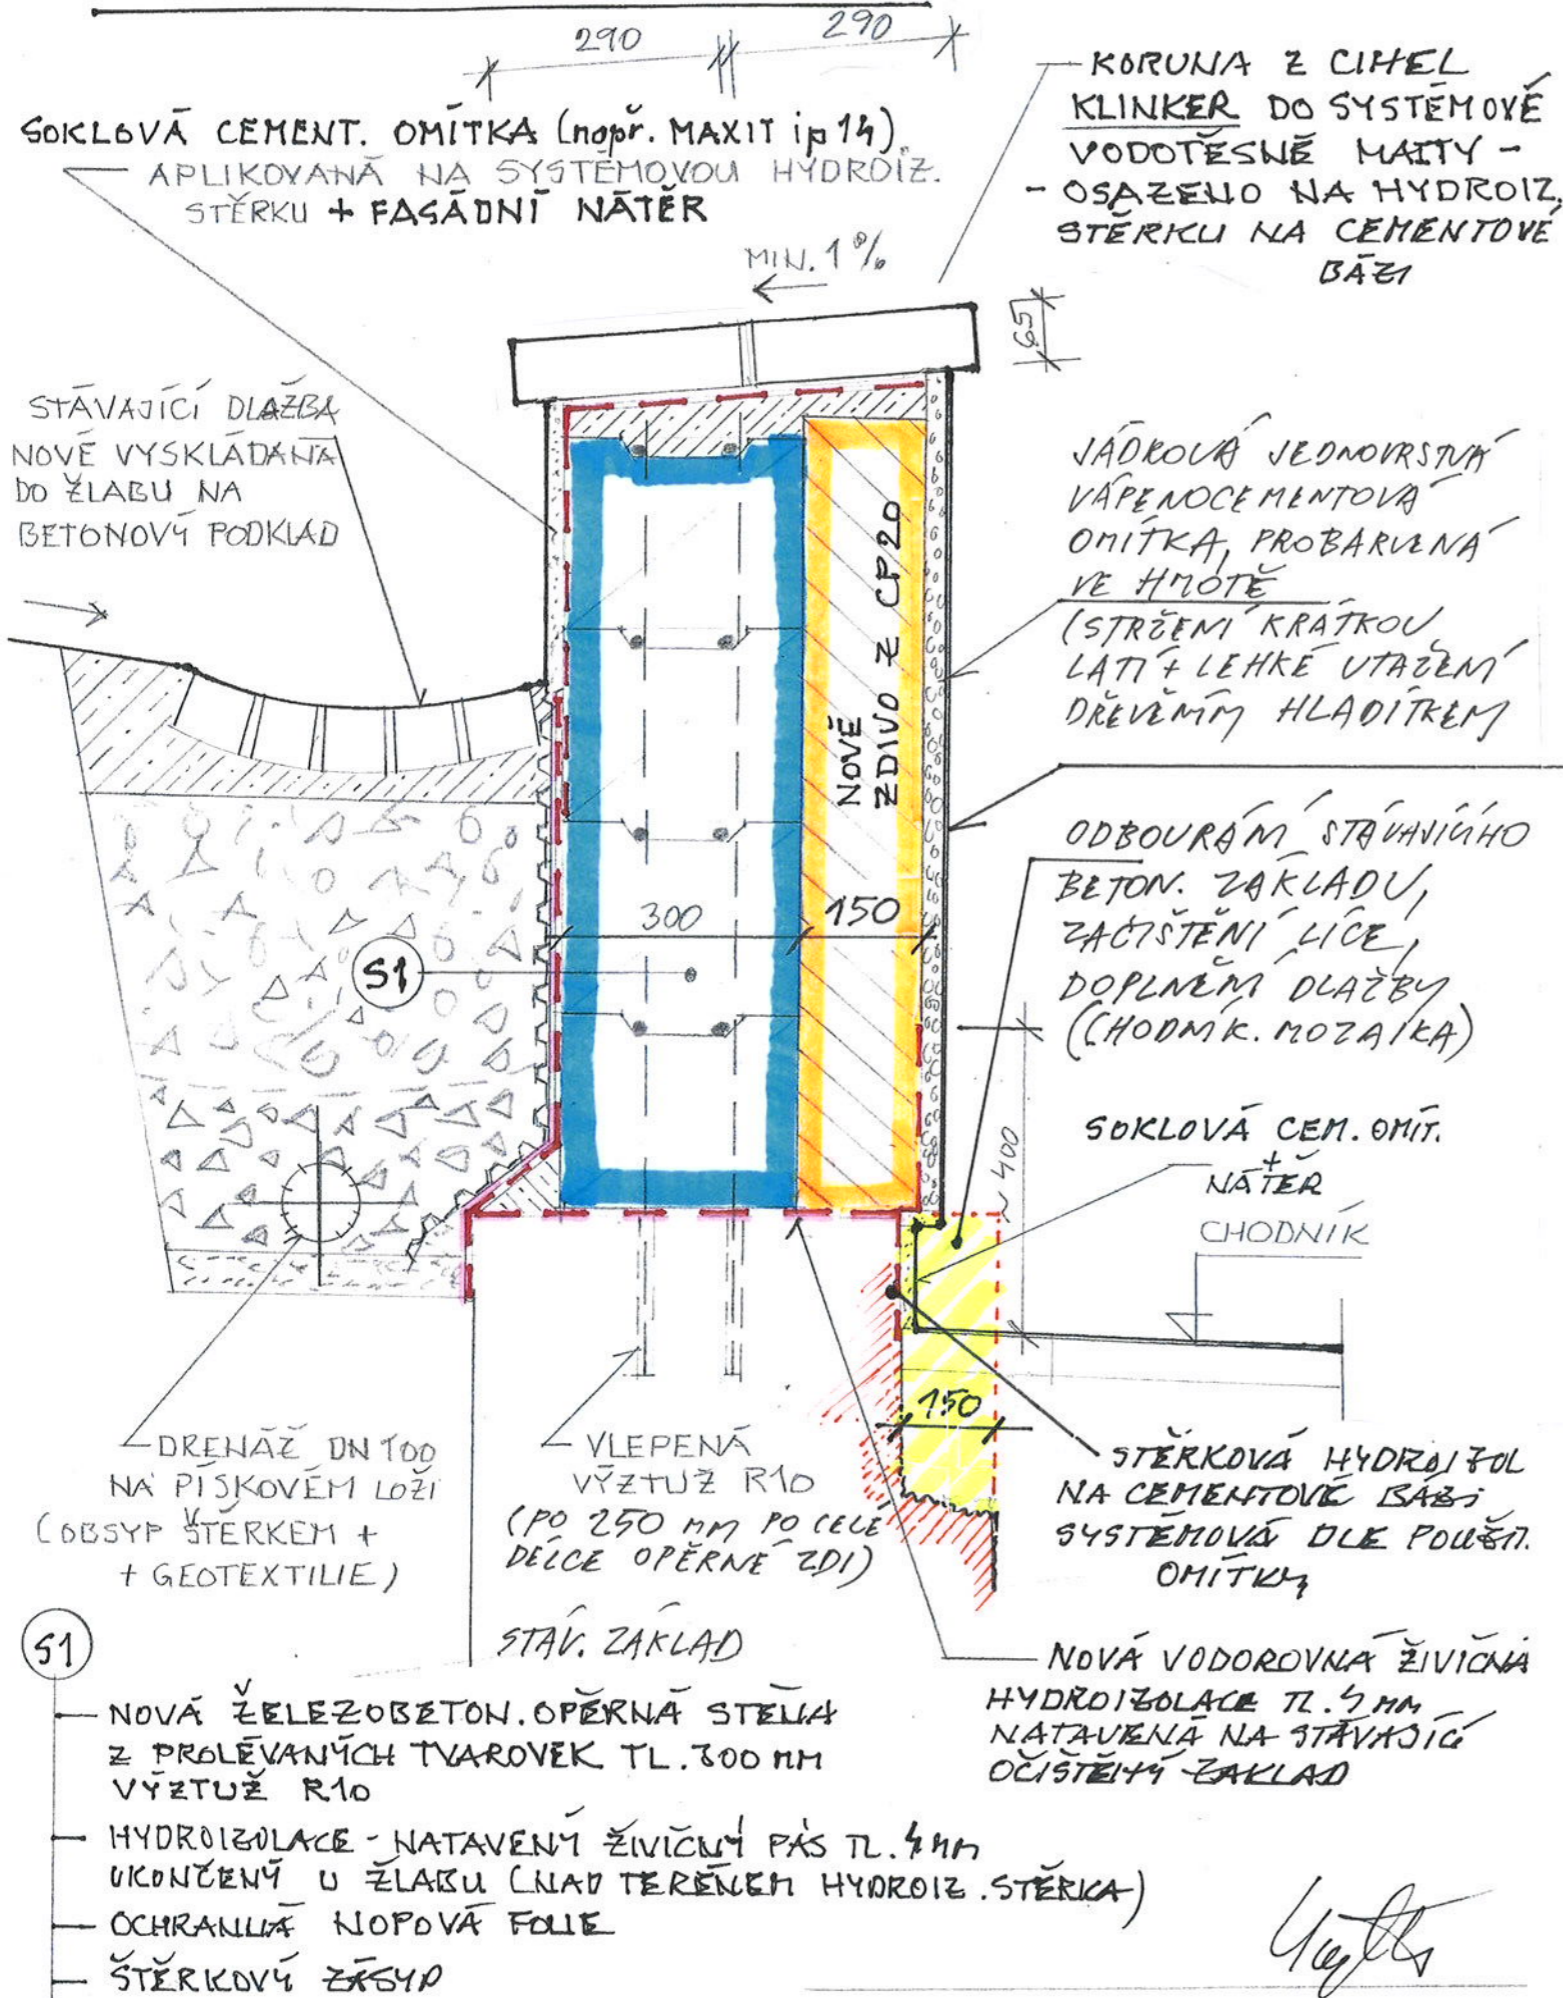 290
290
KORUNA Z CIHEL
KLINKER DO SYSTÉMOVÉ
VODOTĚSNÉ MALTY -
- OSAZENO NA HYDROIZ.
STĚRKU NA CEMENTOVÉ
BÁZI
SOKLOVÁ CEMENT. OMÍTKA (např. MAXIT ip 14)
APLIKOVANÁ NA SYSTÉMOVOU HYDROIZ.
STĚRKU + FASÁDNÍ NÁTĚR
MIN. 1%
65
STÁVAJÍCÍ DLAŽBA
NOVĚ VYSKLÁDANÁ
DO ŽLABU NA
BETONOVÝ PODKLAD
JÁDROVÁ JEDNOVRSTVÁ
VÁPENOCEMENTOVÁ
OMÍTKA, PROBARVENÁ
VE HMOTĚ
(STRŽENÍ KRÁTKOU
LATÍ + LEHKÉ UTAŽENÍ
DŘEVĚNÝM HLADÍTKEM
NOVÉ
ZDIVO Z CP20
ODBOURÁNÍ STÁVAJÍCÍHO
BETON. ZÁKLADU,
ZAČIŠTĚNÍ LÍCE,
DOPLNĚNÍ DLAŽBY
(CHODNÍK. MOZAIKA)
300
150
S1
~400
SOKLOVÁ CEM. OMÍT.
+
NÁTĚR
CHODNÍK
150
DRENÁŽ DN 100
NA PÍSKOVÉM LOŽI
(OBSYP ŠTĚRKEM +
+ GEOTEXTILIE)
VLEPENÁ
VÝZTUŽ R10
(PO 250 MM PO CELÉ
DÉLCE OPĚRNÉ ZDI)
STĚRKOVÁ HYDROIZOL
NA CEMENTOVÉ BÁZI
SYSTÉMOVÁ DLE POUŽIT.
OMÍTKY
STÁV. ZÁKLAD
NOVÁ VODOROVNÁ ŽIVIČNÁ
HYDROIZOLACE TL. 4 MM
NATAVENÁ NA STÁVAJÍCÍ
OČIŠTĚNÝ ZÁKLAD
S1
NOVÁ ŽELEZOBETON. OPĚRNÁ STĚNA
Z PROLÉVANÝCH TVAROVEK TL. 300 MM
VÝZTUŽ R10
HYDROIZOLACE - NATAVENÝ ŽIVIČNÝ PÁS TL. 4 MM
UKONČENÝ U ŽLABU (NAD TERÉNEM HYDROIZ. STĚRKA)
OCHRANNÁ NOPOVÁ FOLIE
ŠTĚRKOVÝ ZÁSYP